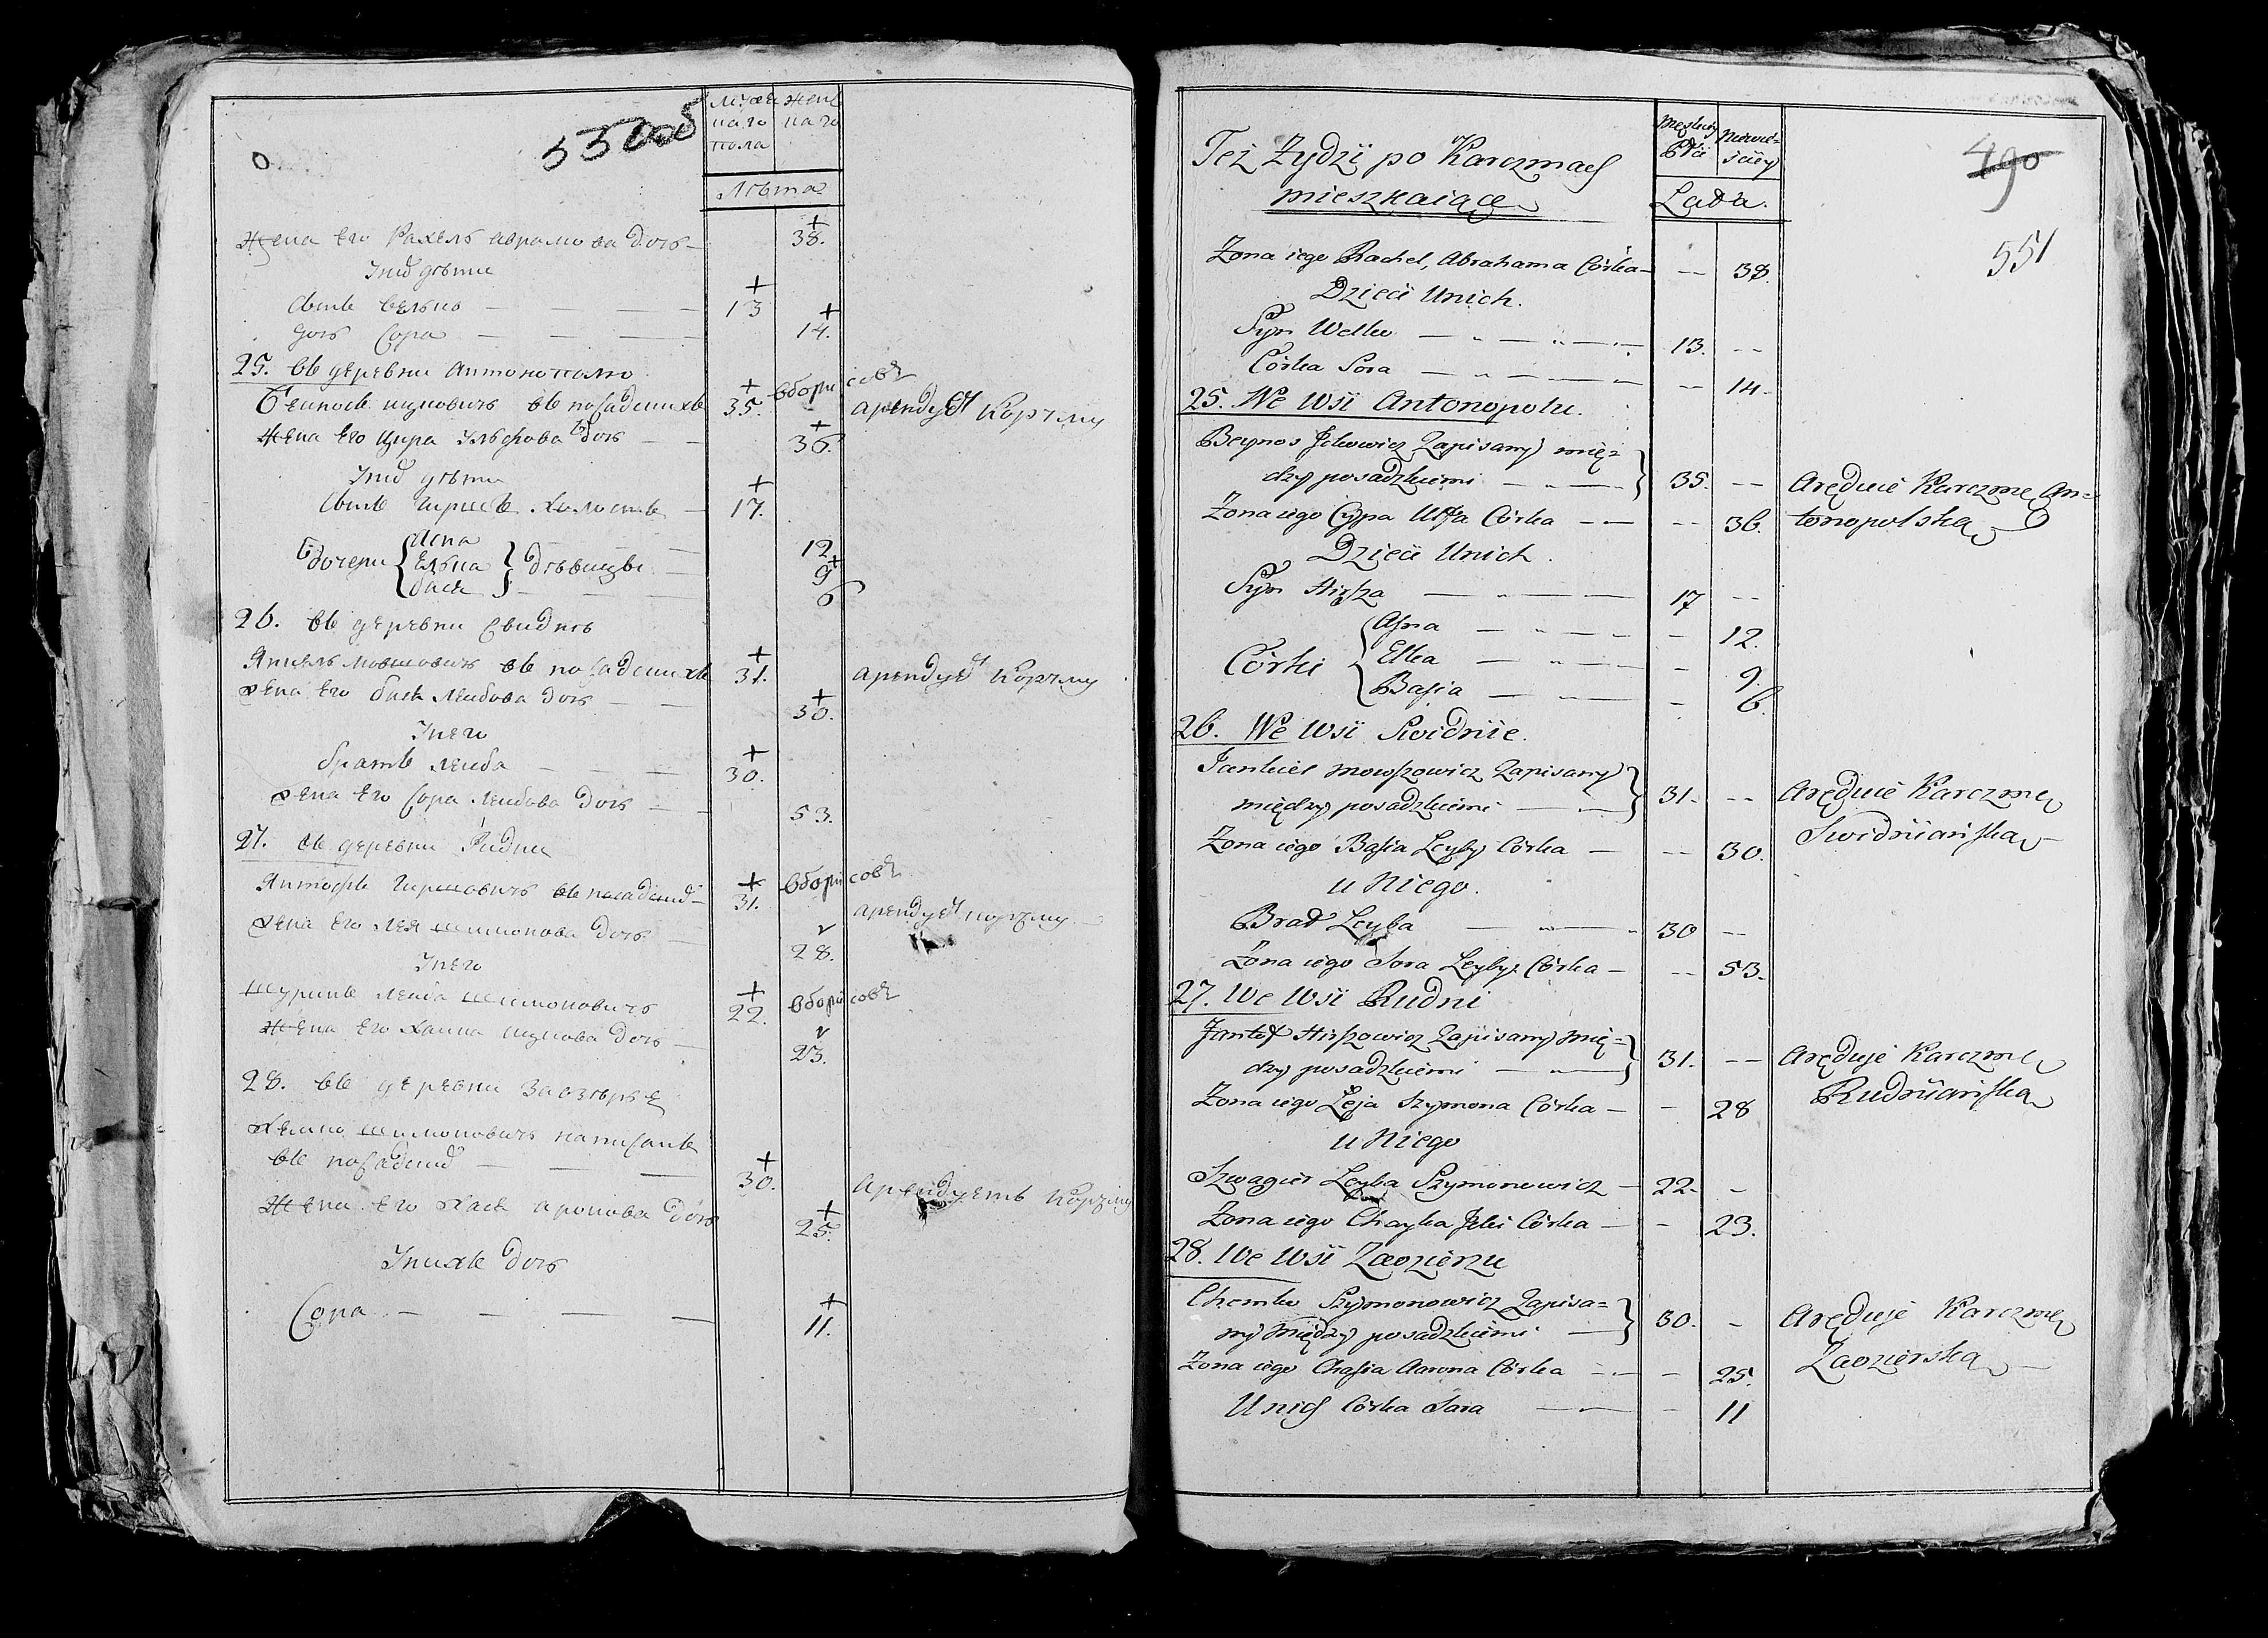 550об
мужескаго пола
женскаго
Лѣта
жена его Рахель Аврамова дочь — 38.
У них дѣти
Сынъ Велько — 13
дочь Сора — 14.
25. въ деревни Антонополю
Бейносъ Ицковичъ въ посадскихъ 35. арендует Корчму
жена его Цира дочь — 36.
У них дѣти
Сынъ Гиршъ Холостъ — 17.
дочери Асна 12
Елька девицы 9
Бася 6
26. въ деревни Свиднѣ
Янкель Мовшовичъ въ посадскихъ 31. арендует Корчму
жена его Бася Лейбова дочь — 30.
У него
братъ Лейба — 30.
жена его Сора Лейбова дочь — 53.
27. въ деревни Рудни
Гиршовичъ въ посадских 31. арендует корчму
жена его Лея Шимонова дочь 28.
У него
шуринъ Лейба Шимоновичъ 22.
жена его Хайка Ицкова дочь — 23.
28. въ деревни Заозѣрье
Хемко Шимоновичъ написанъ
въ посадских — 30. Арендуетъ Корчму
жена его Хася Аронова дочь 25.
У нихъ дочь
Сора — 11.
490
551
Też Żydzi po Karczmach
mieszkaiące
Męskiey Płci
Niewieściey
Lata.
Żona iego Rachel, Abrahama Córka — -- 38.
Dzieci u nich.
Syn Welko — 13. --
Córka Sora — -- 14.
25. We Wsi Antonopolu.
Beynos Ickowicz Zapisany mię=
dzy posadzkiemi — 35. -- Aręduie Karczmę An=
Żona iego Cypa Córka — -- 36. tonopolską
Dzieci u nich.
Syn Hirsza — 17 --
Córki Asna — 12.
Elka — 9.
Basia — 6.
26. We Wsi Swidnie.
Jankiel Mowszowicz Zapisany
między posadzkiemi — 31. -- Aręduie Karczmę
Żona iego Basia Leyby Córka — -- 30. Swidniańską
u Niego.
Brat Leyba — 30 --
Żona iego Sora Leyby Córka — -- 53.
27. We Wsi Rudni
Jantof Hirszowicz Zapisany mię=
dzy posadzkiemi — 31. -- Aręduje Karczmę
Żona iego Leja Szymona Córka — - 28 Rudniańską
u Niego
Szwagier Leyba Szymonowicz — 22. -
Żona iego Chayka Icki Córka — - 23.
28. We Wsi Zaozierzu
Chemko Szymonowicz Zapisa=
ny między posadzkiemi — 30. - Aręduje Karczmę
Żona iego Chasia Aarona Córka — 25. Zaozierską
U nich Córka Sara — - 11